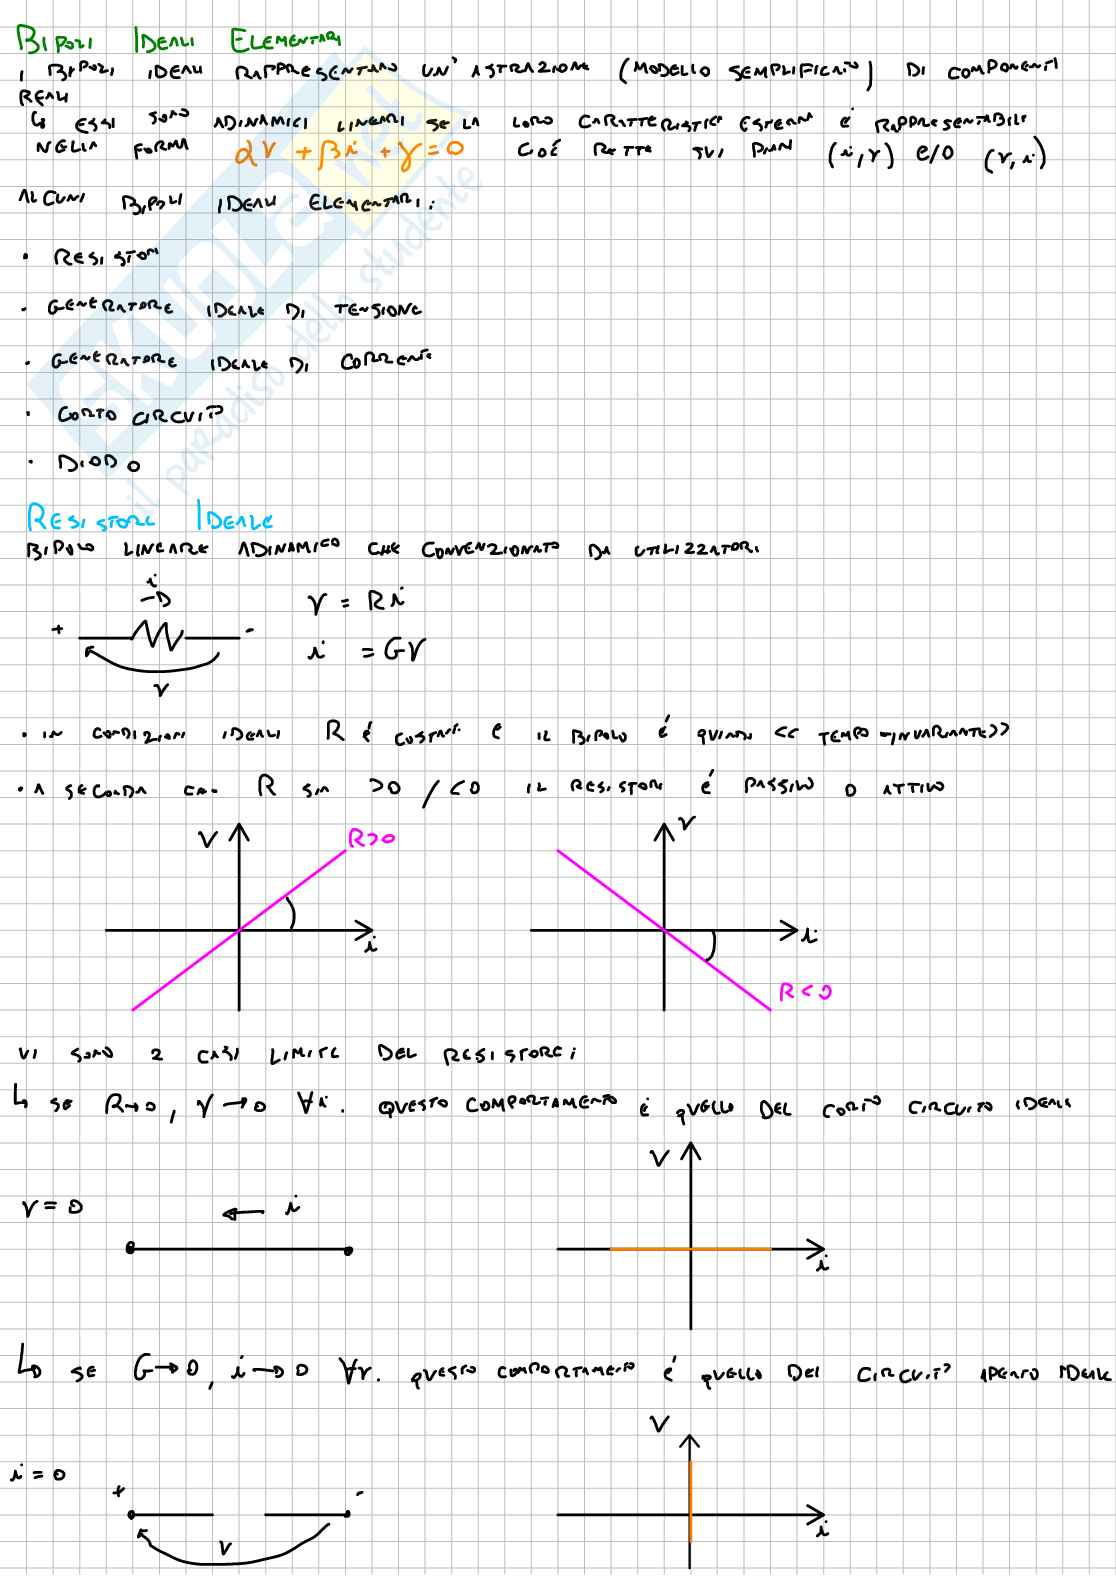 BIPOLI IDEALI ELEMENTARI
I BIPOLI IDEALI RAPPRESENTANO UN' ASTRAZIONE (MODELLO SEMPLIFICATO) DI COMPONENTI
REALI
↳ ESSI SONO ADINAMICI LINEARI SE LA LORO CARATTERISTICA ESTERNA É RAPPRESENTABILE
NELLA FORMA αv + βi + γ = 0 CIOÉ RETTE SUI PIANI (i,v) e/o (v,i)
ALCUNI BIPOLI IDEALI ELEMENTARI:
• RESISTORI
• GENERATORE IDEALE DI TENSIONE
• GENERATORE IDEALE DI CORRENTE
• CORTO CIRCUITO
• DIODO
RESISTORE IDEALE
BIPOLO LINEARE ADINAMICO CHE CONVENZIONATO DA UTILIZZATORI
i
+ - v = Ri
v i = Gv
• IN CONDIZIONI IDEALI R É COSTANTE E IL BIPOLO É QUINDI << TEMPO-INVARIANTE>>
• A SECONDA CHE R SIA >0 / <0 IL RESISTORE É PASSIVO O ATTIVO
V R>0 V
i i
R<0
VI SONO 2 CASI LIMITE DEL RESISTORE:
↳ SE R→0, V→0 ∀i. QUESTO COMPORTAMENTO É QUELLO DEL CORTO CIRCUITO IDEALE
V
v = 0 ← i
i
↳ SE G→0, i→0 ∀v. QUESTO COMPORTAMENTO É QUELLO DEL CIRCUITO APERTO IDEALE
V
i = 0
+ -
v i
SKUOLA.net
il paradiso dello studente